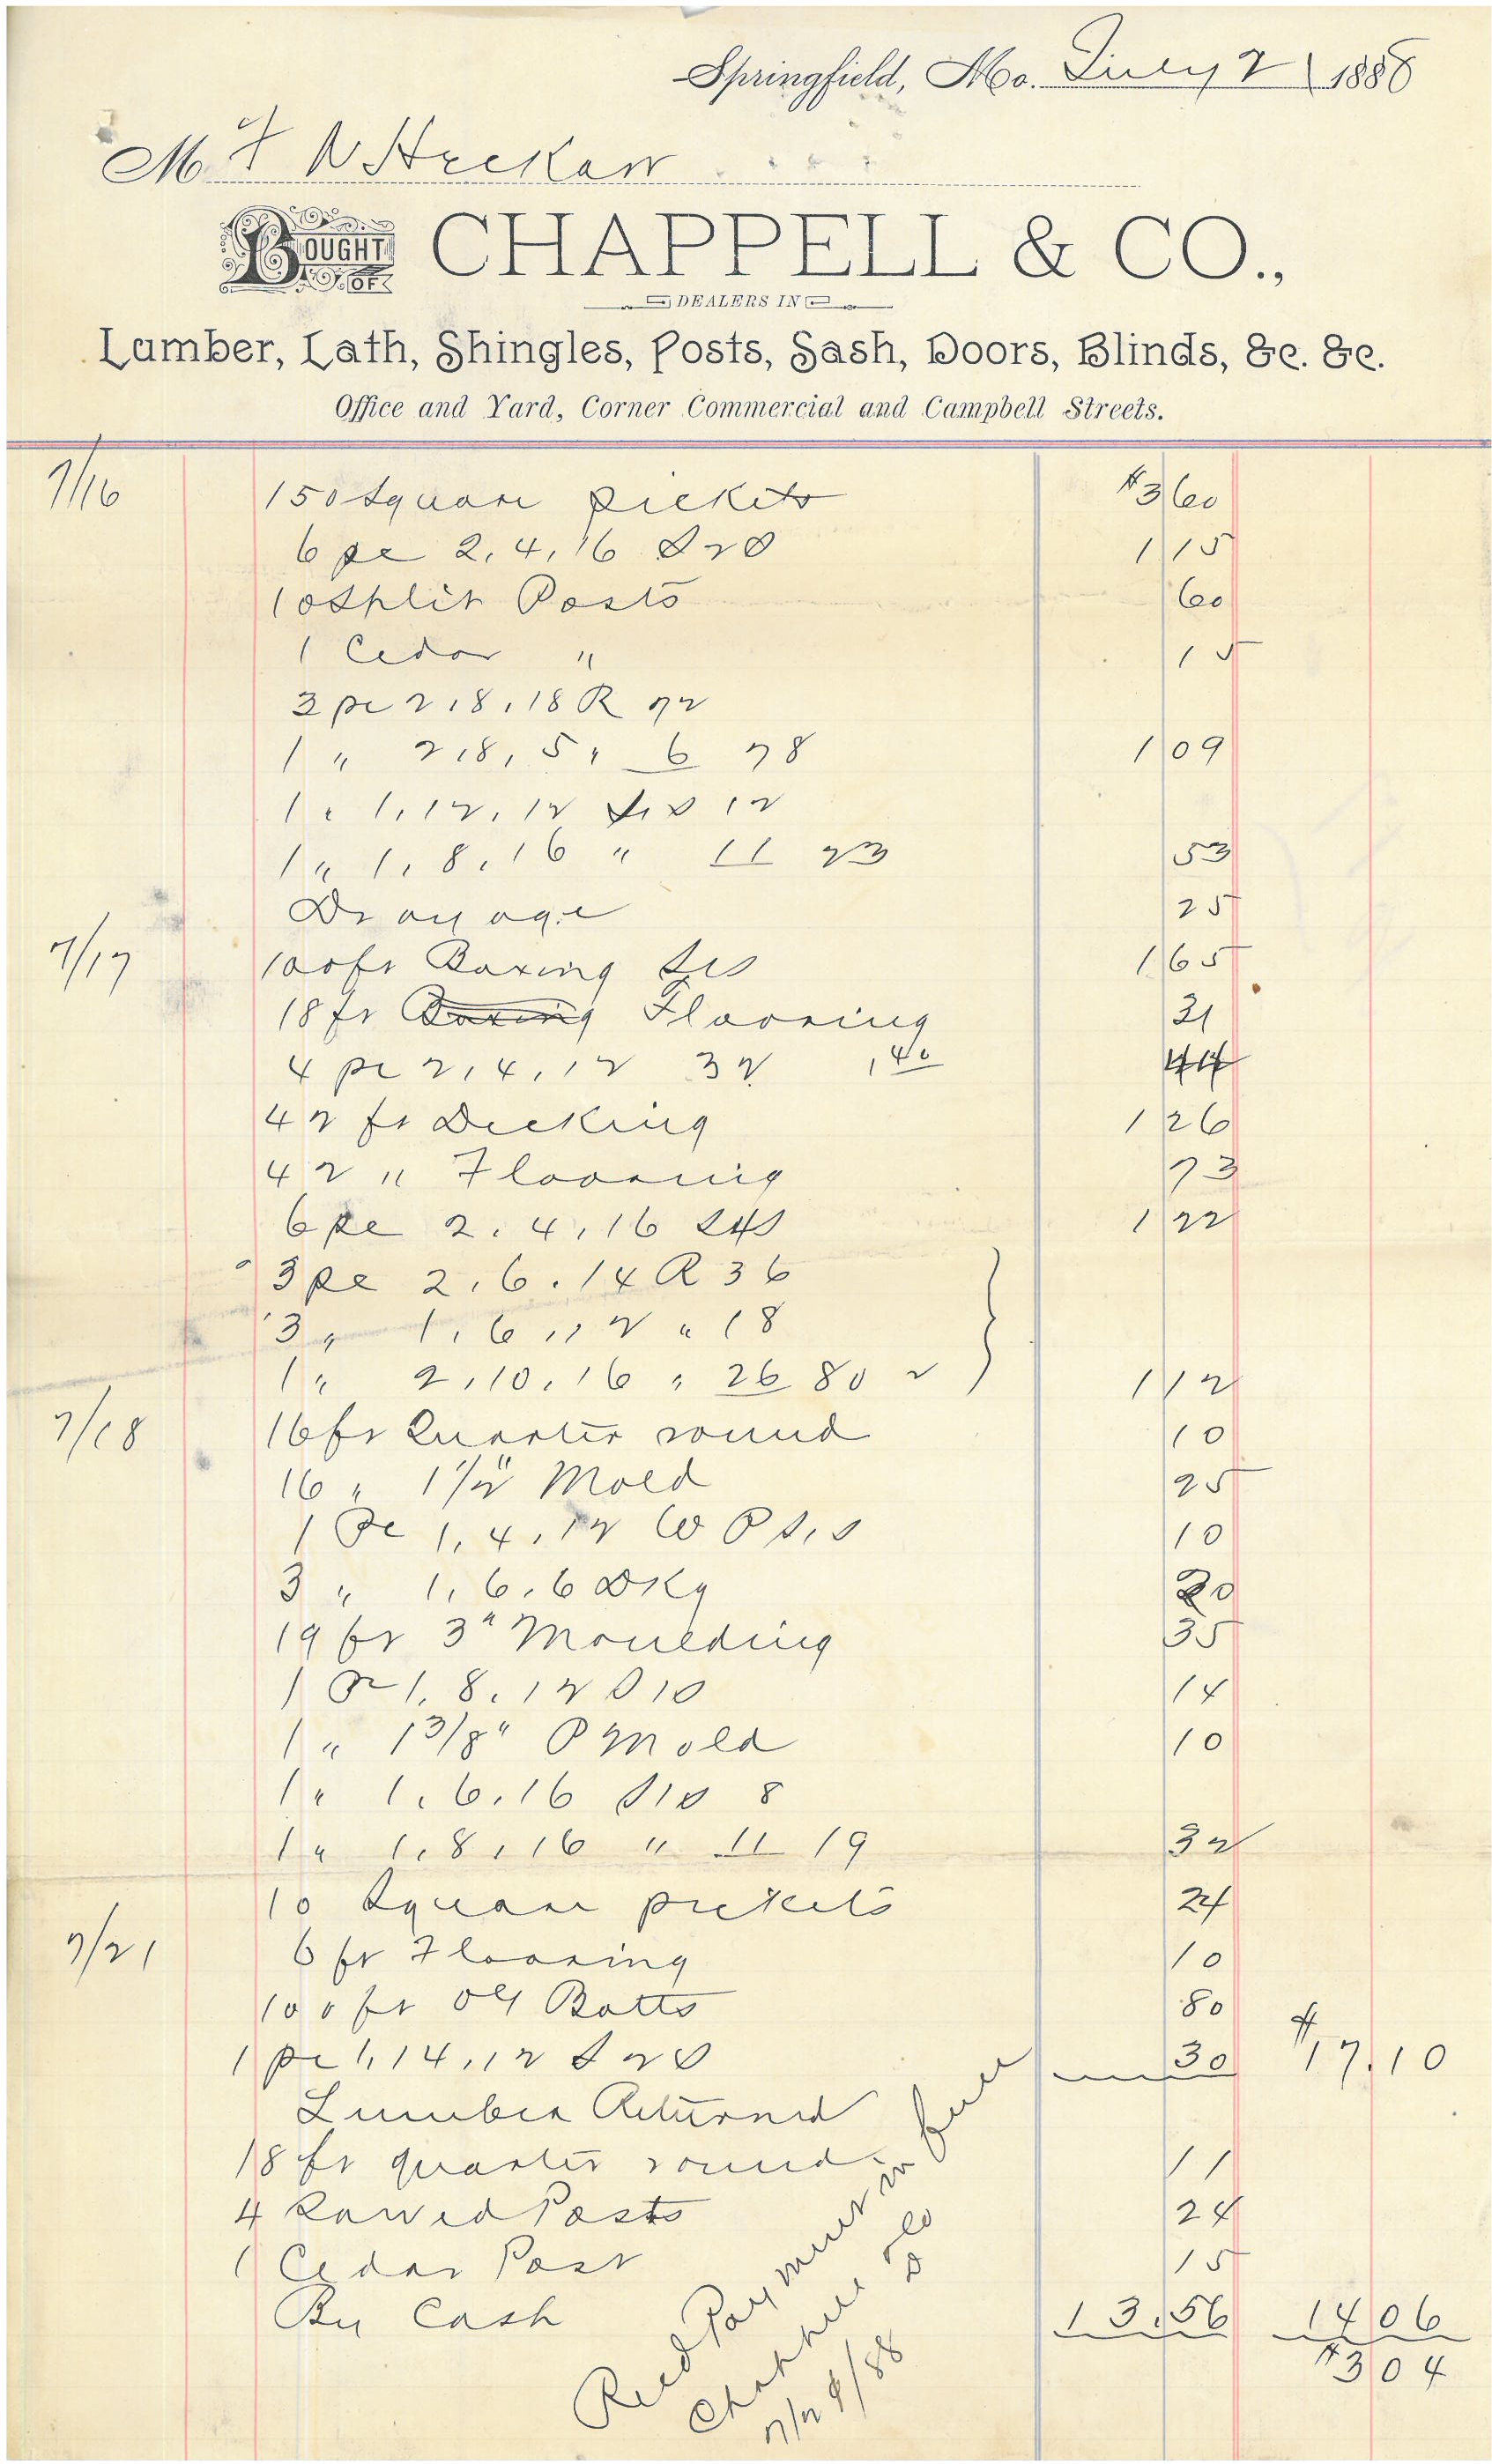 Springfield, Mo. July 21 1888
M
BOUGHT OF CHAPPELL & CO.,
DEALERS IN
Lumber, Lath, Shingles, Posts, Sash, Doors, Blinds, &c. &c.
Office and Yard, Corner Commercial and Campbell Streets.
7/16 150 Square pickets $3 60
6 pc 2,4,16 S2S 1 15
10 Split Posts 60
1 Cedar " 15
3 pc 2,8,18 R 72
1 " 2,8,5, 6 78 1 09
1 " 1,12,12 S1S 12
1 " 1,8,16 " 11 23 53
Drayage 25
7/17 100 ft Boxing S1S 1 65
18 ft Boxing Flooring 31
4 pc 2,4,12 32 1,40 44
42 ft Decking 1 26
42 " Flooring 73
6 pc 2,4,16 S4S 1 22
3 pc 2,6,14 R 36
3 " 1,6,12 " 18
1 " 2,10,16 " 26 80 1 12
7/18 16 ft Quarter round 10
16 " 1 1/2" Mold 25
1 Pc 1,4,12 W P S1S 10
3 " 1,6,6 Dkg 20
19 ft 3" Moulding 35
1 Pc 1,8,12 S 10 14
1 " 1 3/8" P Mold 10
1 " 1,6,16 S1S 8
1 " 1,8,16 " 11 19 32
10 Square pickets 24
7/21 6 ft Flooring 10
100 ft OG Batts 80
1 pc 1,14,12 S2S 30 $17.10
Lumber Returned
18 ft quarter round 11
4 Sawed Posts 24
1 Cedar Post 15
By Cash 13.56 14 06
$3 04
Recd Payment in full
Chappell & Co
7/24/88